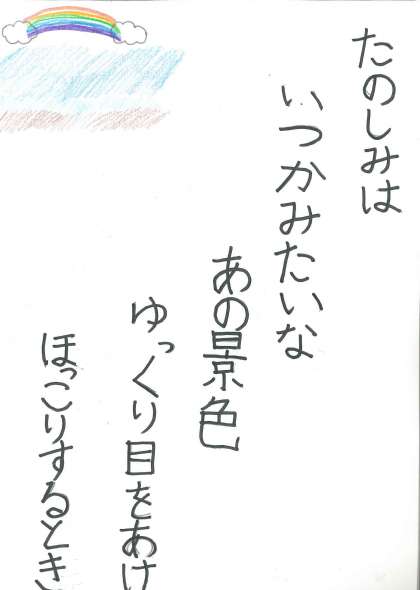 たのしみは
いつかみたいな
あの景色
ゆっくり目をあけ
ほっこりするとき